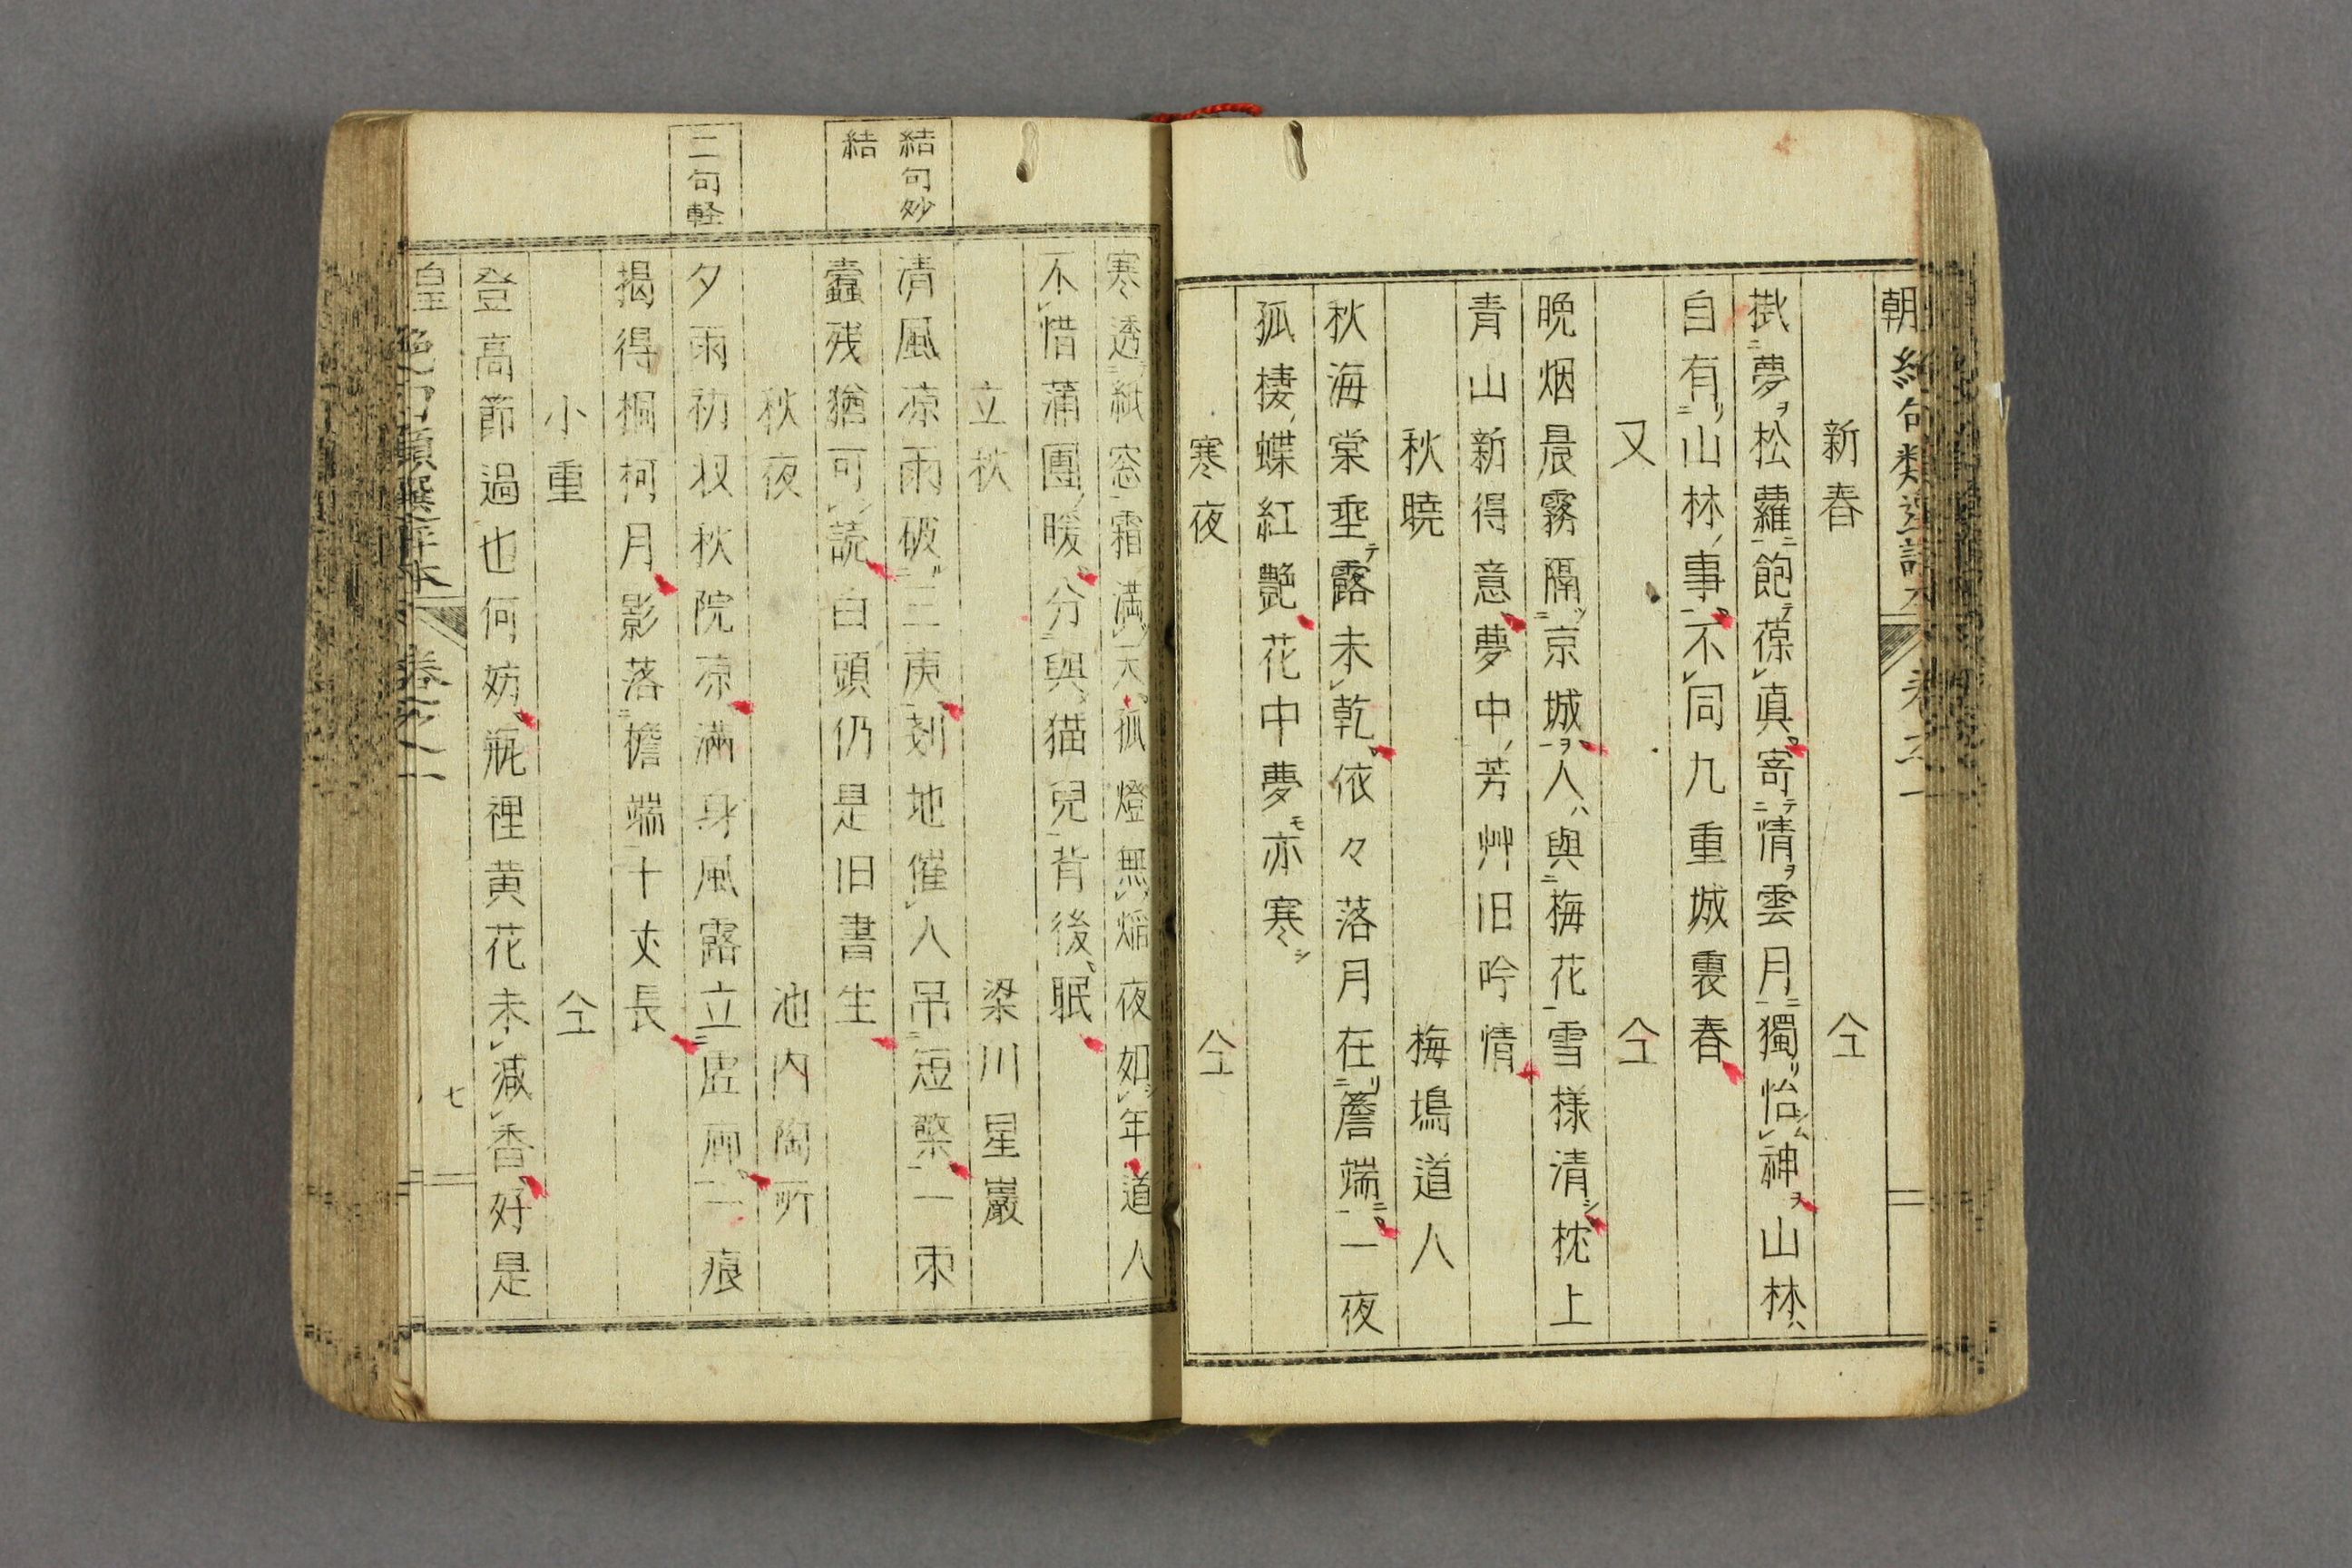 新春 仝
夢松蘿飽葆真寄情雲月獨怡神山林
自有山林事不同九重城裏春
又 仝
晩烟晨霧隔京城人與梅花雪様清枕上
青山新得意夢中芳艸旧吟情
秋暁 梅塢道人
秋海棠垂露未乾依々落月在簷端一夜
孤棲蝶紅艶花中夢亦寒
寒夜 仝
寒透紙窓霜満天孤燈無焰夜如年道人
不惜蒲團暖分與猫兒背後眠
結句妙
結
立秋 梁川星巖
清風凉雨破三庚刻地催人吊短檠一束
蠹残猶可読白頭仍是旧書生
秋夜 池内陶所
二句軽
夕雨初収秋院凉満身風露立虚廊一痕
揭得桐柯月影落檐端十丈長
小重 仝
登高節過也何妨瓶裡黄花未減香好是
七